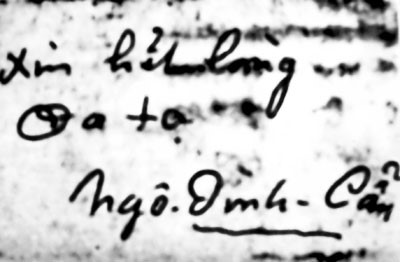 Xin hết lòng
Đa tạ
Ngô-Đình-Cẩn